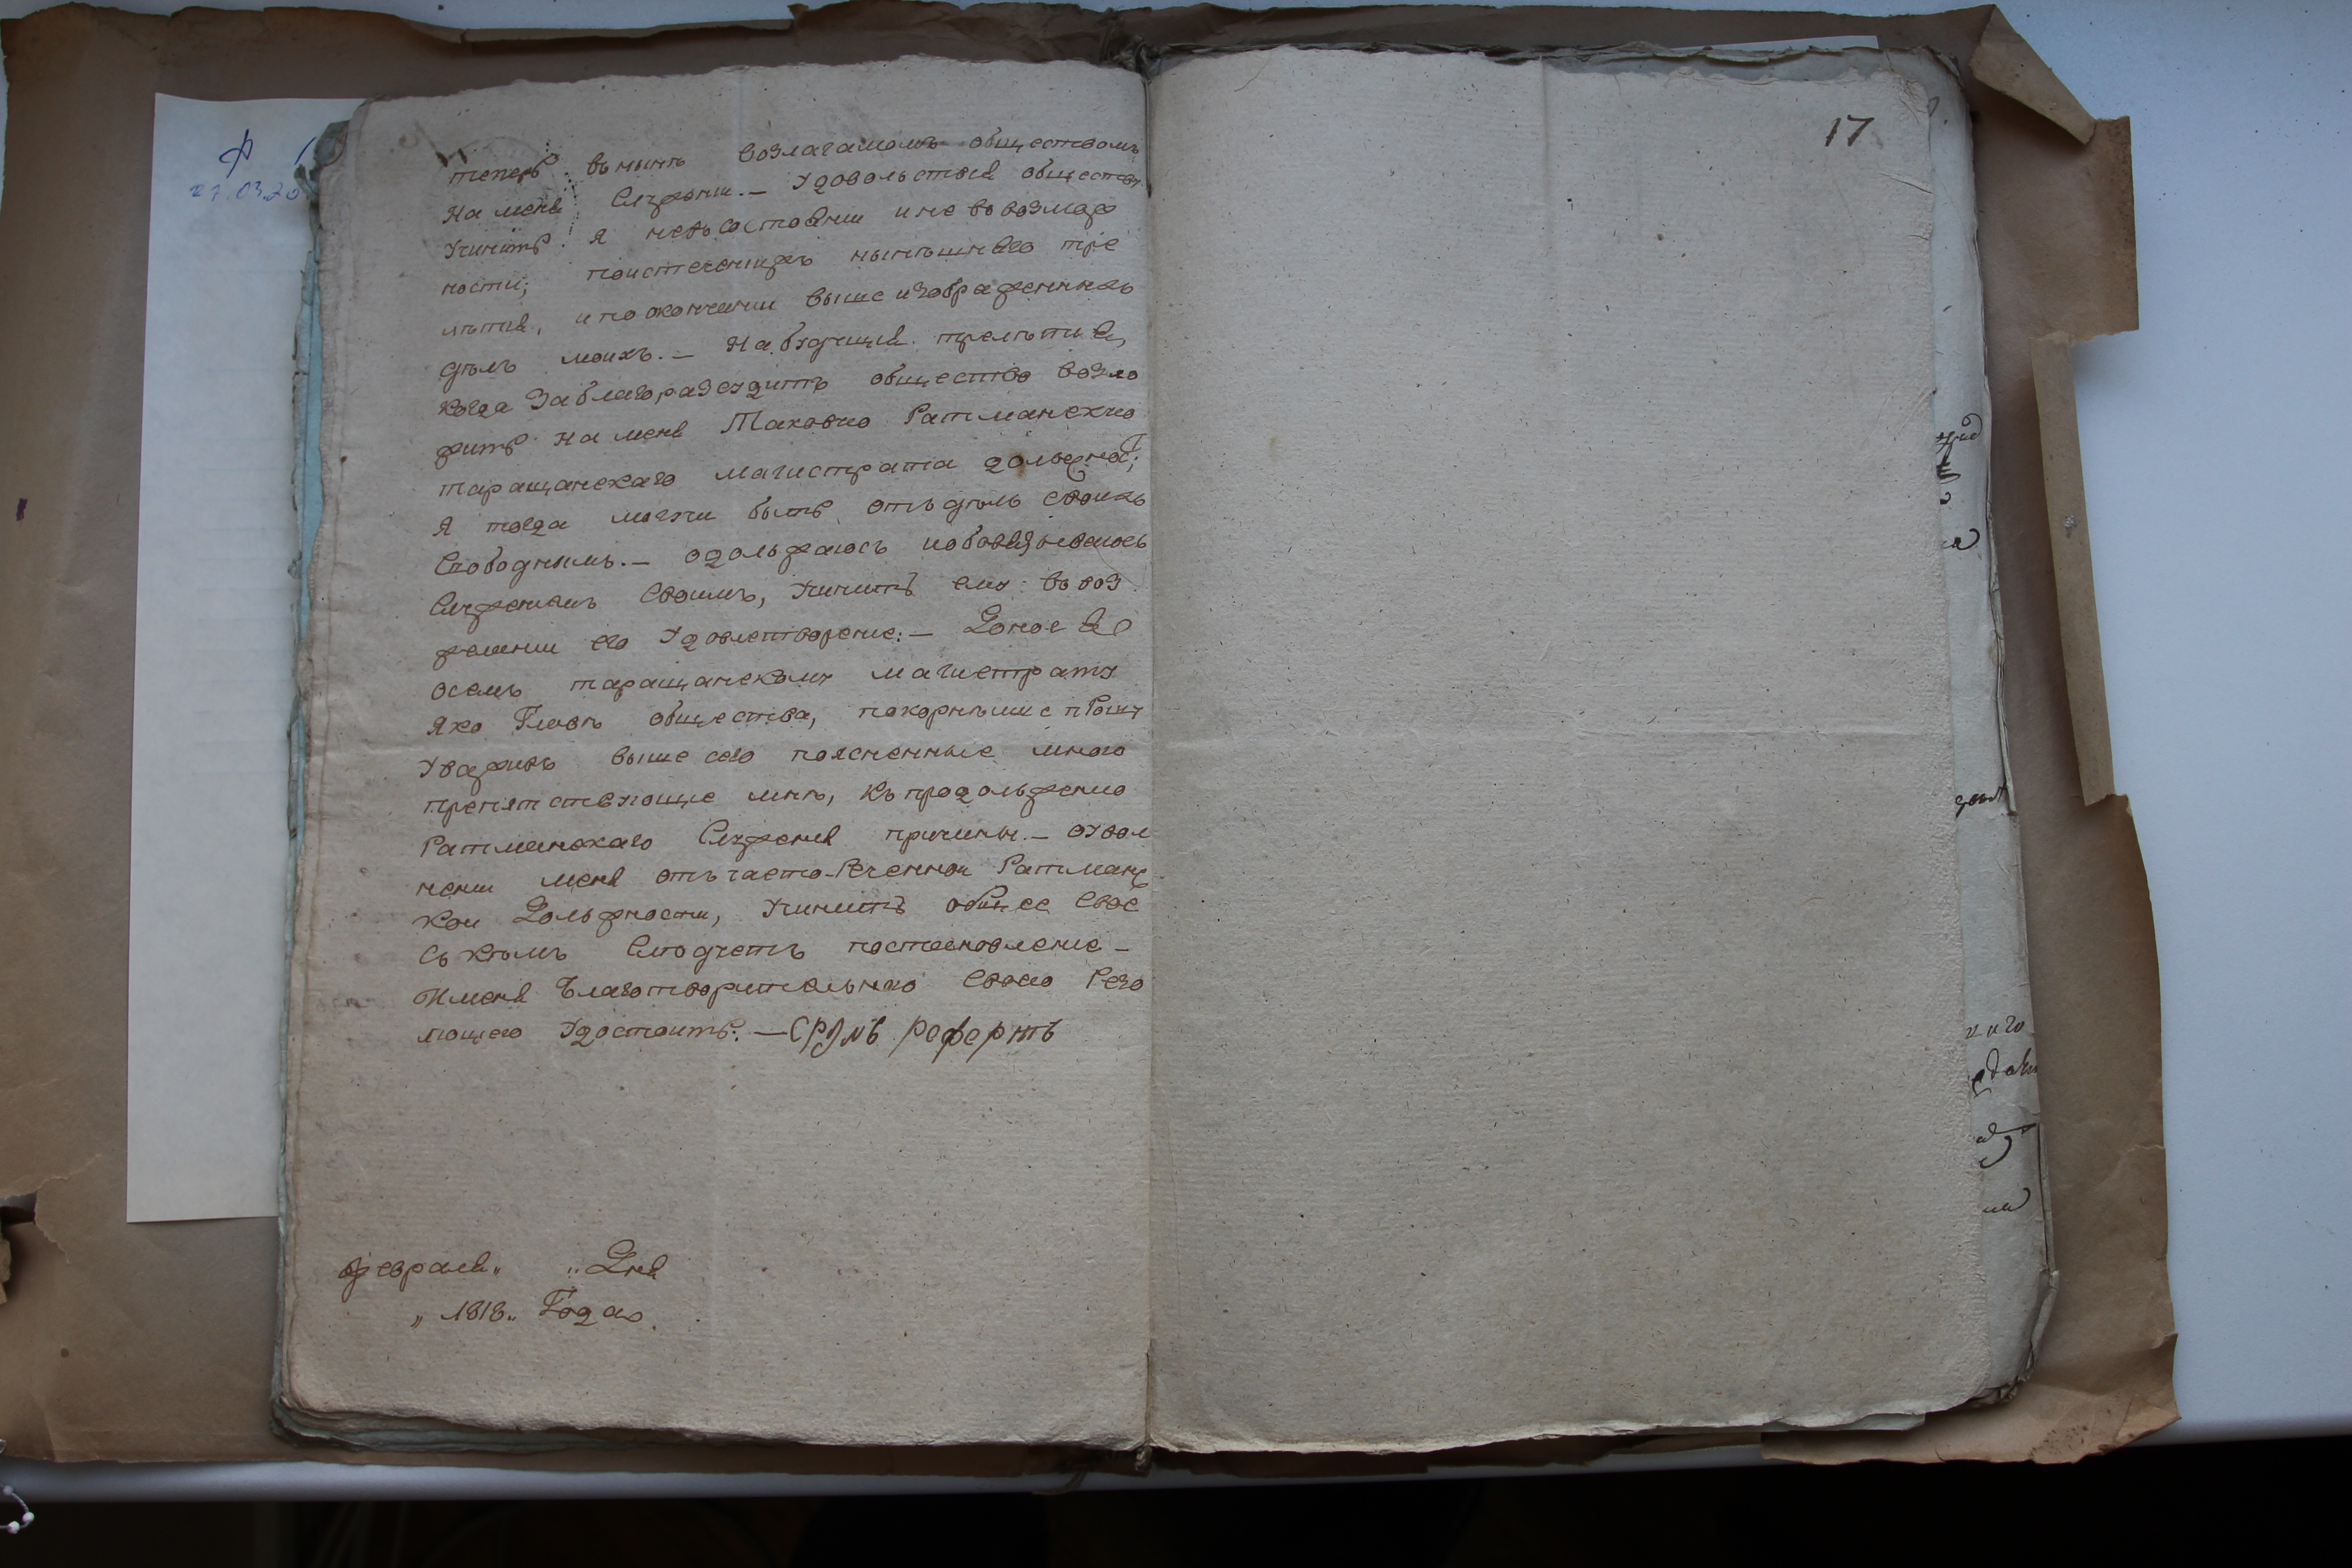 теперъ въ нынѣ возлагаемомъ обществомъ
На меня Служении. — Удовольствія обществу
Учинить я невъ состоянии и не во возмож
ности; по истечении же нынѣшняго тре
лѣтия, и по окончании выше изображенныхъ
дѣлъ моихъ. — На будущия трелѣтия,
когда заблагоразсудитъ общество возло
жить на меня Таковую Ратманскую
таращанскаго магистрата должность;
Я тогда могучи быть отъ дѣлъ своихъ
Свободнымъ. — одолжаюсь и обовязываюсь
Служениемъ своимъ, Учинить ему въ воз
ражении его Удовлетворение: — Донося
о семъ таращанскому магистрату
Яко Главѣ общества, покорнѣише прошу
Уважив выше сего поясненные мною
препятствующие мнѣ, къ продолжению
Ратманскаго Служения причины. — о увол
нении меня отъ часто-реченной Ратманс
кои Должности, Учинить общее свое
съ кѣмъ Слюдуетъ постановление —
И меня Благотворительною своею Резо
люциею Удостоить: —
февраля „ „ Дня
„ 1818 „ Года
17
Ф
27.03.20